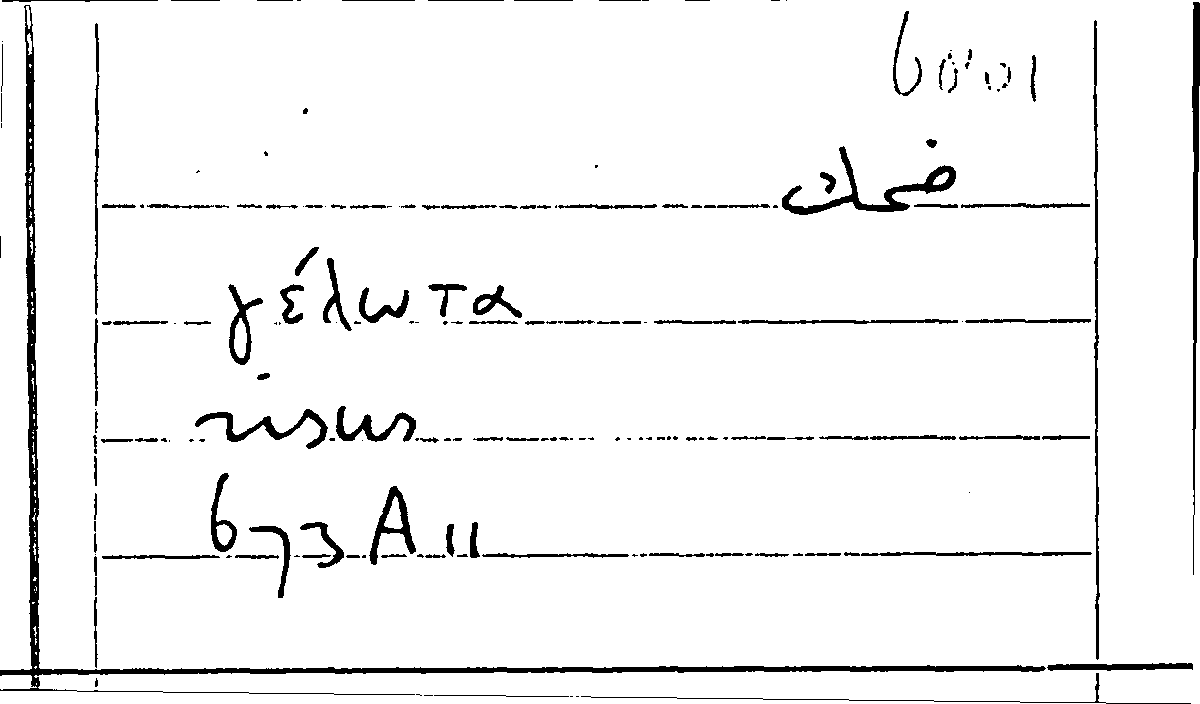 ضحك
γέλωτα
risus
673 A 11